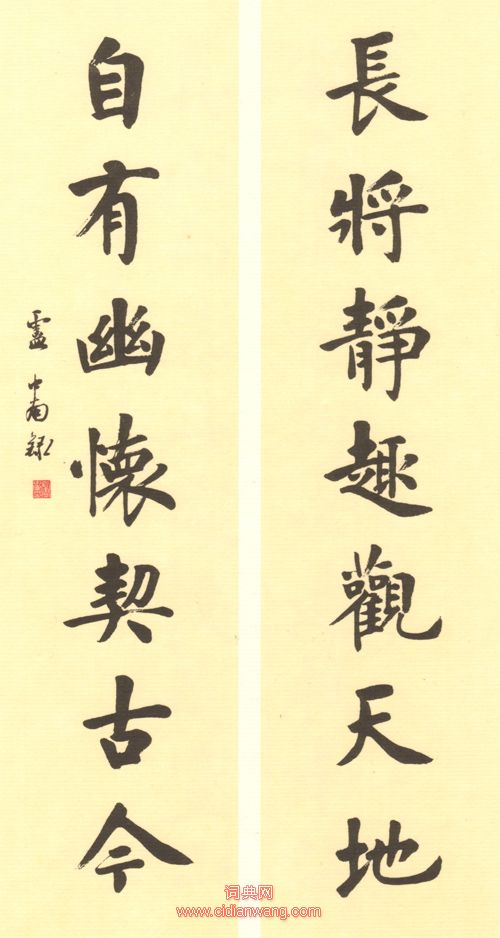 長將靜趣觀天地
自有幽懷契古今
盧中南錄
词典网
www.cidianwang.com